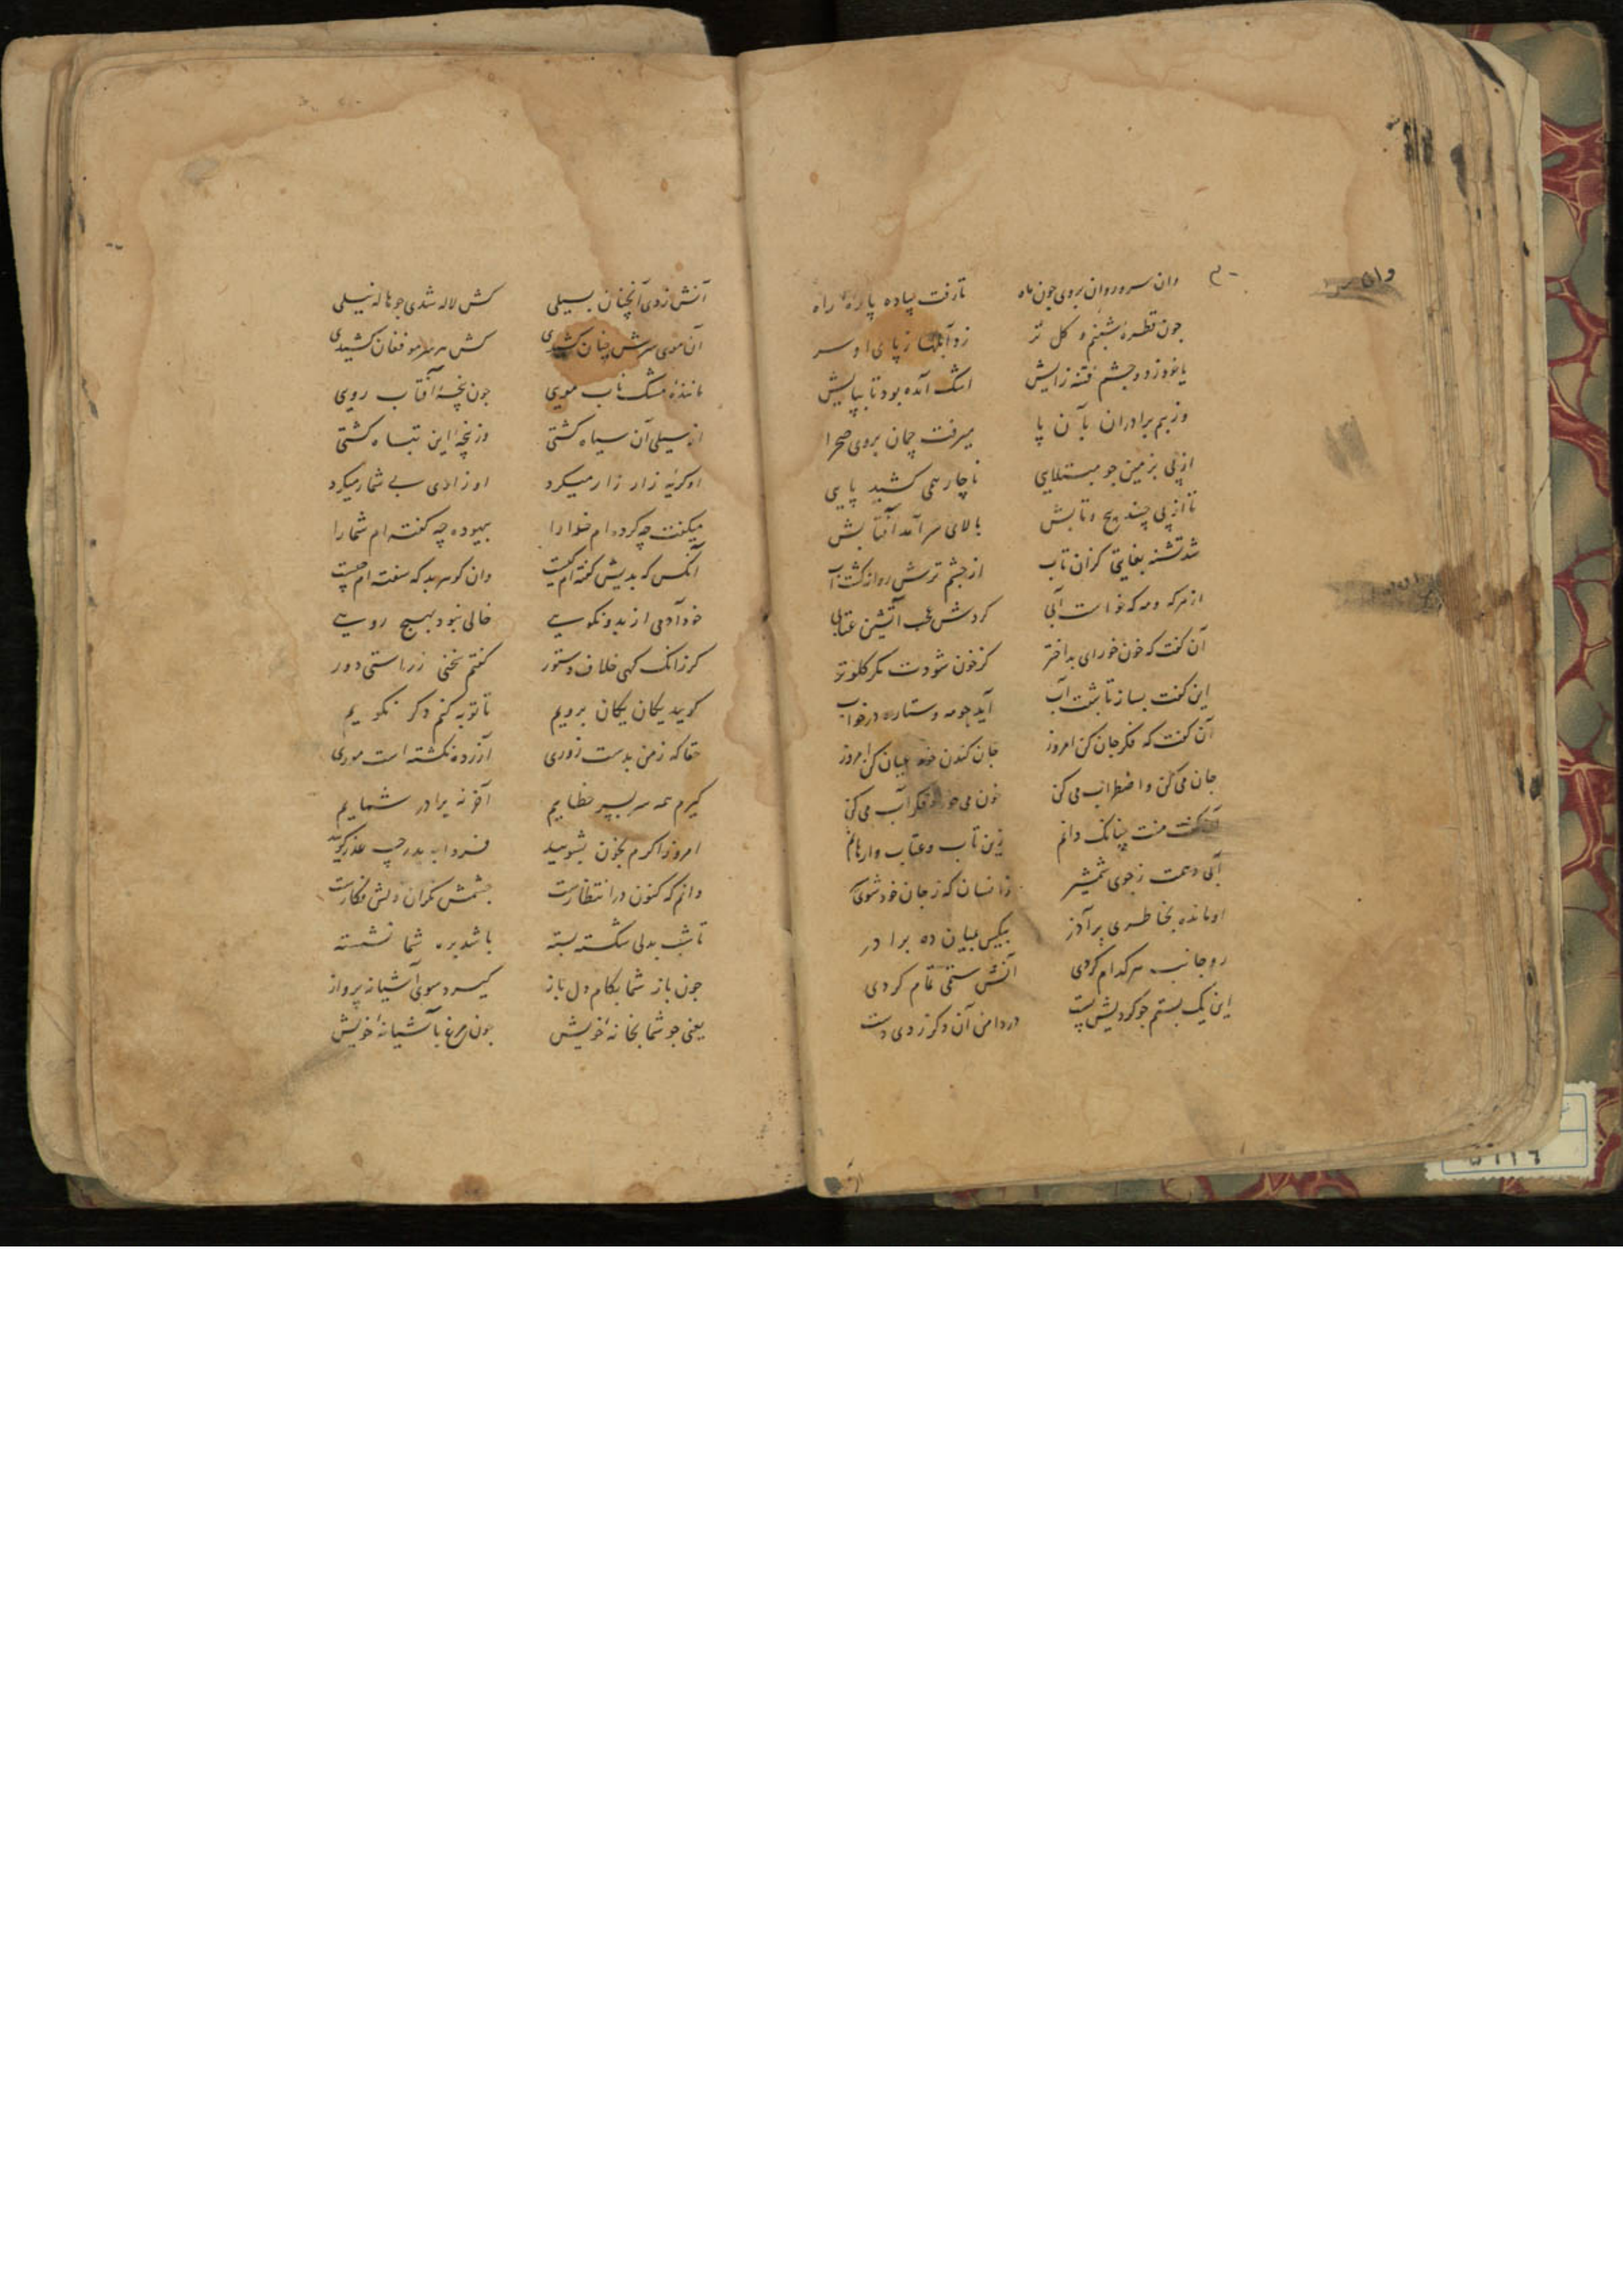 وان سرو روان بروی چون ماه تا رفت پیاده پاره راه
چون قطره شبنم و گل تر زو آبلها ز پای او سر
یا خود ز دو چشم فتنه زایش اشک آمده بود تا بپایش
وز بیم برادران بآن پا میرفت چمان بروی صحرا
از پی بزمین چو مبتلایی ناچار همی کشید پایی
تا از پی چند پیچ و تابش بالای سر آمد آفتابش
شد تشنه بغایتی کزان تاب از چشم ترش روانه گشت آب
از هر که و مه که خواست آبی کردش غضب آتشین عتابی
آن گفت که خون خور ای بداختر کز خون شودت مگر گلو تر
این گفت بساز تا شب آب آید چو مه و ستاره در خواب
آن گفت که فکر جان کن امروز جان کندن خود عیان کن امروز
جان می‌کن و اضطراب می‌کن خون می‌خور و فکر آب می‌کن
گفت منت چنانک دانم زین تاب و عتاب وارهانم
آبی دهمت ز جوی شمشیر زانسان که ز جان خود شوی سیر
او مانده بخاطری پر آذر بیکس بمیان ده برادر
رو جانب هر کدام کردی آنش ستمی تمام کردی
این یک بستم چو کردیش پست در دامن آن دگر زدی دست
آنش زدی آنچنان بسیلی کش لاله شدی چو هاله نیلی
آن موی سرش چنان کشیدی کش هر سر مو فغان کشیدی
ماننده مشک ناب مویی چون پنجه آفتاب رویی
از سیلی آن سیاه گشتی وز پنجه این تباه گشتی
او گریه زار زار میکرد او زاری بی شمار میکرد
میگفت چه کرده‌ام خدا را بیهوده چه گفته‌ام شما را
آنکس که بدیش گفته‌ام کیست وان گوهر بد که سفته‌ام چیست
خود آدمی از بد و نکویی خالی نبود بهیچ رویی
گر زانک گهی خلاف دستور گفتم سخنی ز راستی دور
گویید یکان یکان برویم تا توبه کنم دگر نگویم
حقا که ز من بدست زوری آزرده نگشته است موری
گیرم همه سر بسر خطایم آخر نه برادر شمایم
امروز اگرم بخون بشویید فردا به پدر چه عذر گویید
دانم که کنون در انتظارست چشمش نگران دلش فکارست
تا شب بدلی شکسته بسته باشد بره شما نشسته
چون باز شما بکام دل باز گیرد سوی آشیانه پرواز
یعنی چو شما بخانه خویش چون مرغ بآشیانه خویش